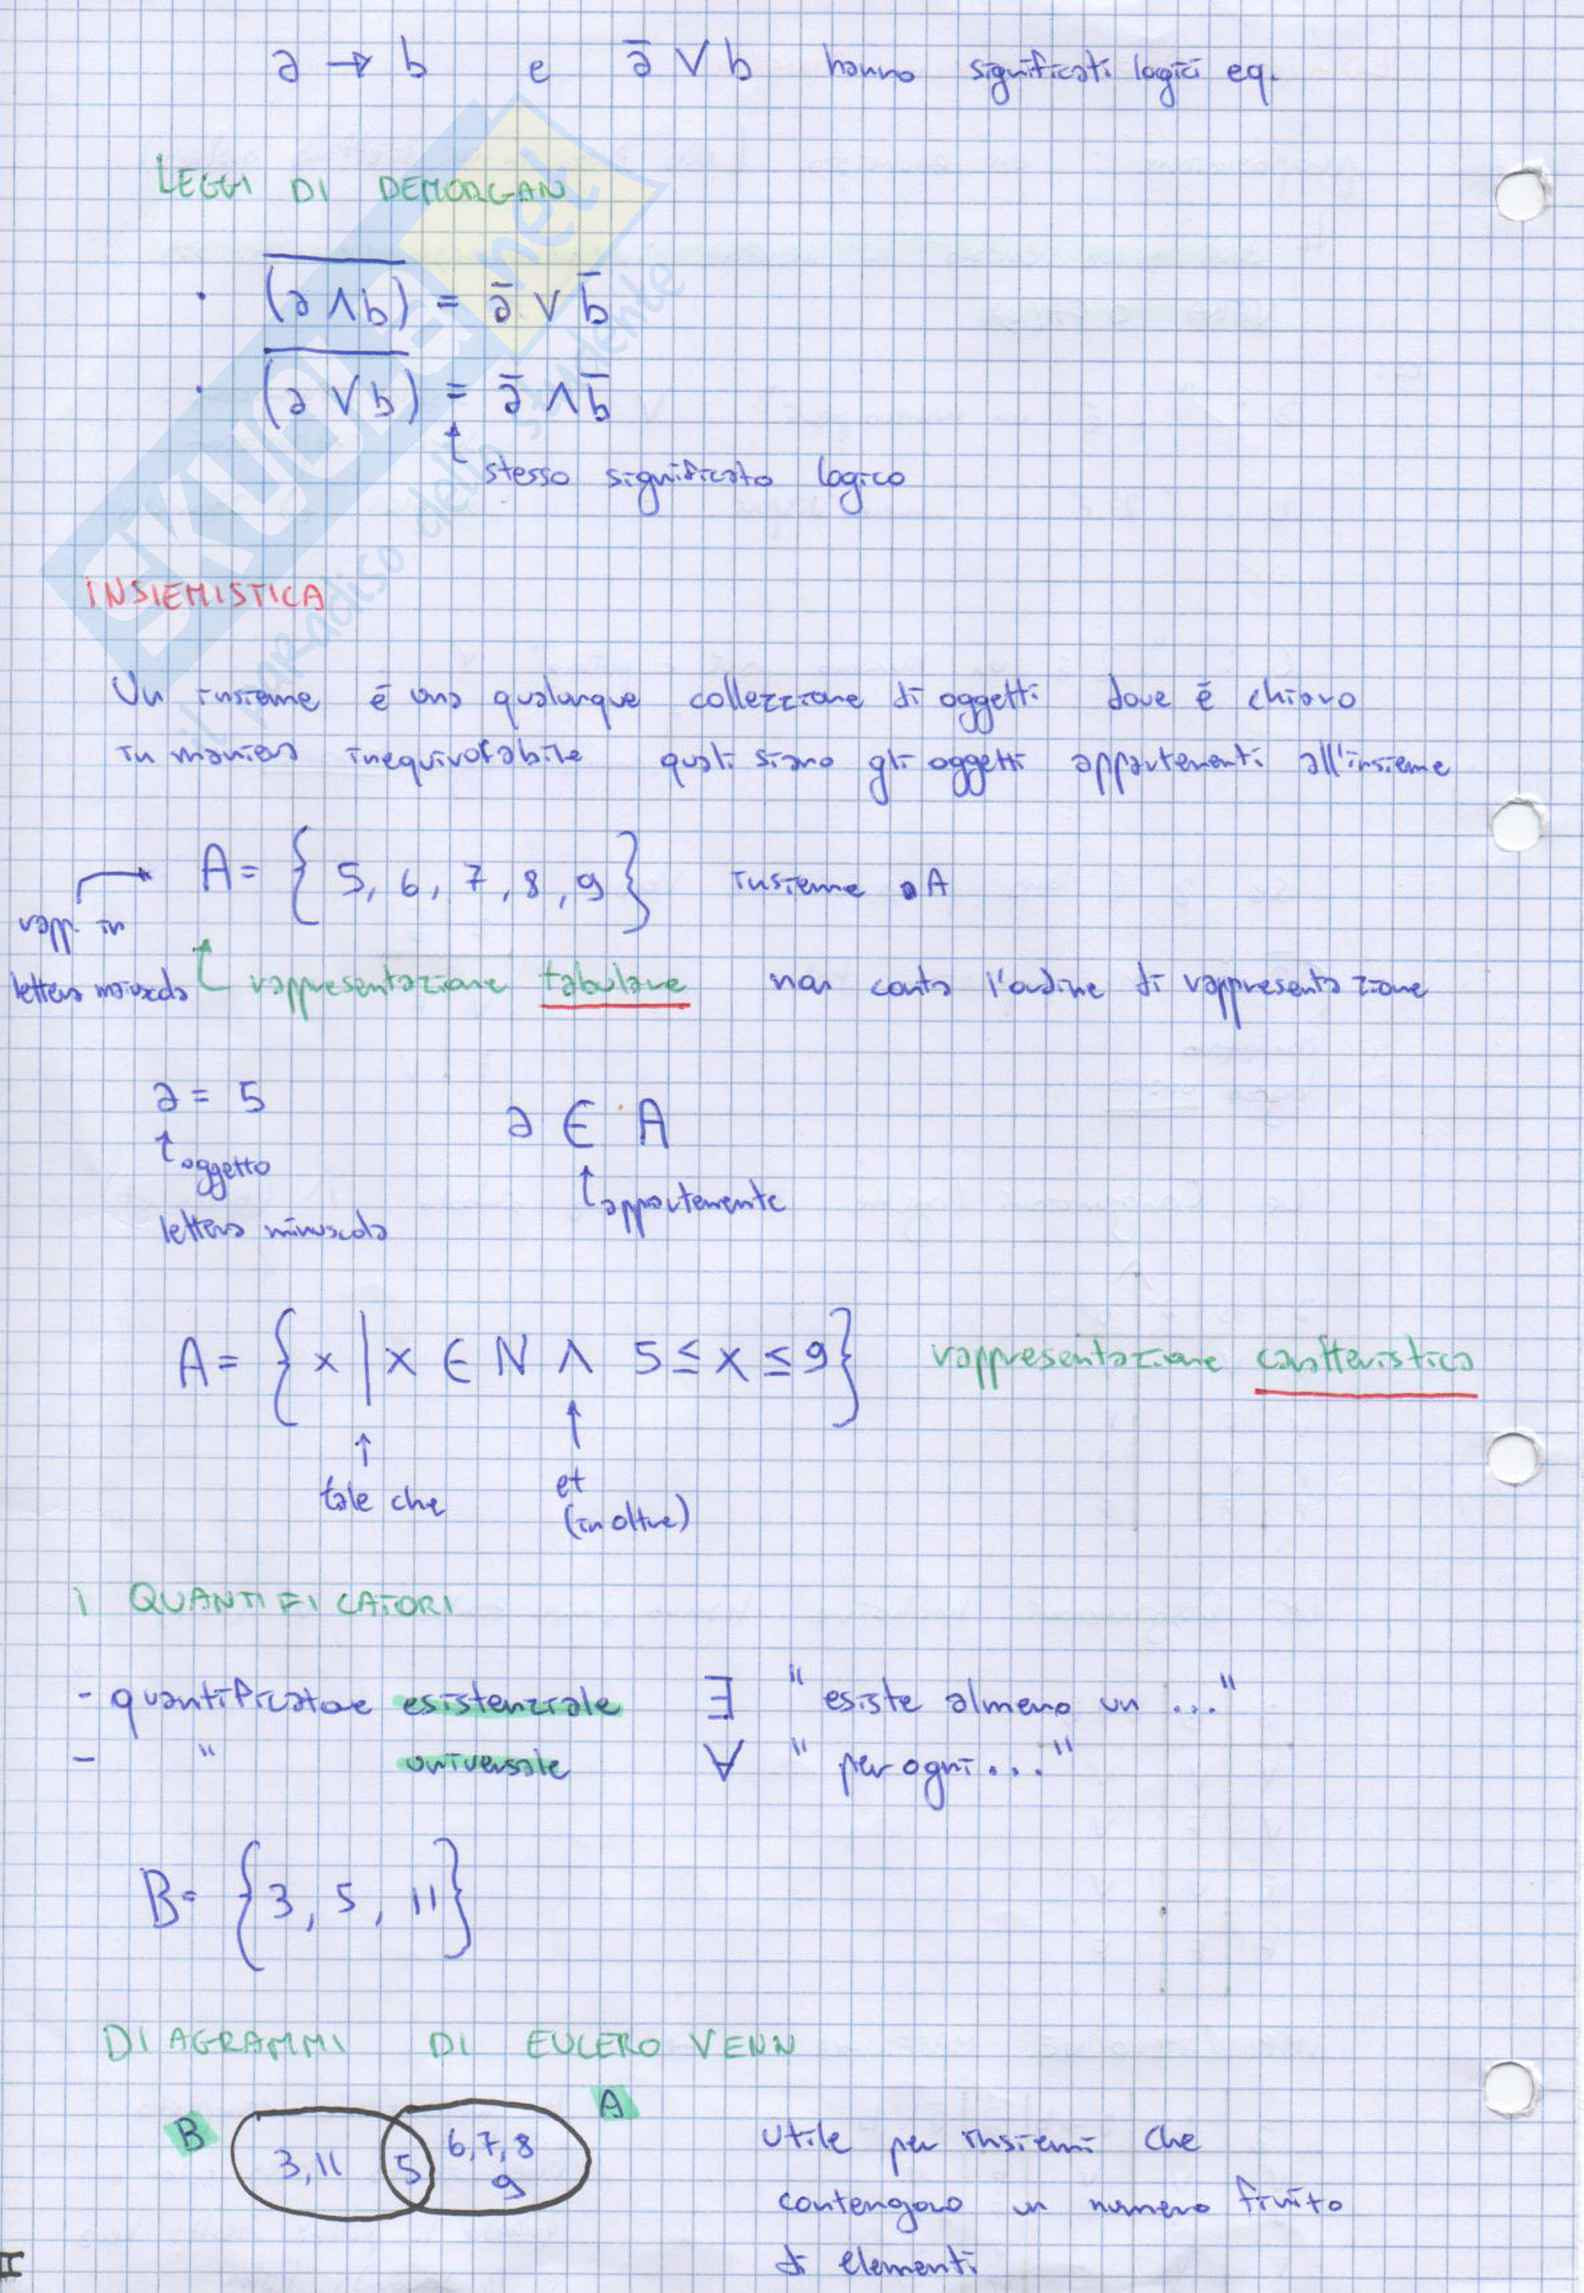 a → b e ā ∨ b hanno significati logici eq.
LEGGI DI DEMORGAN
· \overline{(a ∧ b)} = ā ∨ b̄
· \overline{(a ∨ b)} = ā ∧ b̄
↑ stesso significato logico
INSIEMISTICA
Un insieme é una qualunque collezzione di oggetti dove é chiaro
in maniera inequivocabile quali siano gli oggetti appartenenti all'insieme
A = { 5, 6, 7, 8, 9 } insieme A
rapp. in
lettera maiuscola
rappresentazione tabulare non conta l'ordine di rappresentazione
a = 5 a ∈ A
↑ oggetto ↑ appartenente
lettera minuscola
A = { x | x ∈ N ∧ 5 ≤ x ≤ 9 } rappresentazione caratteristica
↑ ↑
tale che et
(in oltre)
I QUANTIFICATORI
- quantificatore esistenziale ∃ " esiste almeno un ... "
- " universale ∀ " per ogni ... "
B = { 3, 5, 11 }
DIAGRAMMI DI EULERO VENN
B A
3, 11 5 6, 7, 8
9
utile per insiemi che
contengono un numero finito
di elementi
SKUOLA.net
il paradiso dello studente